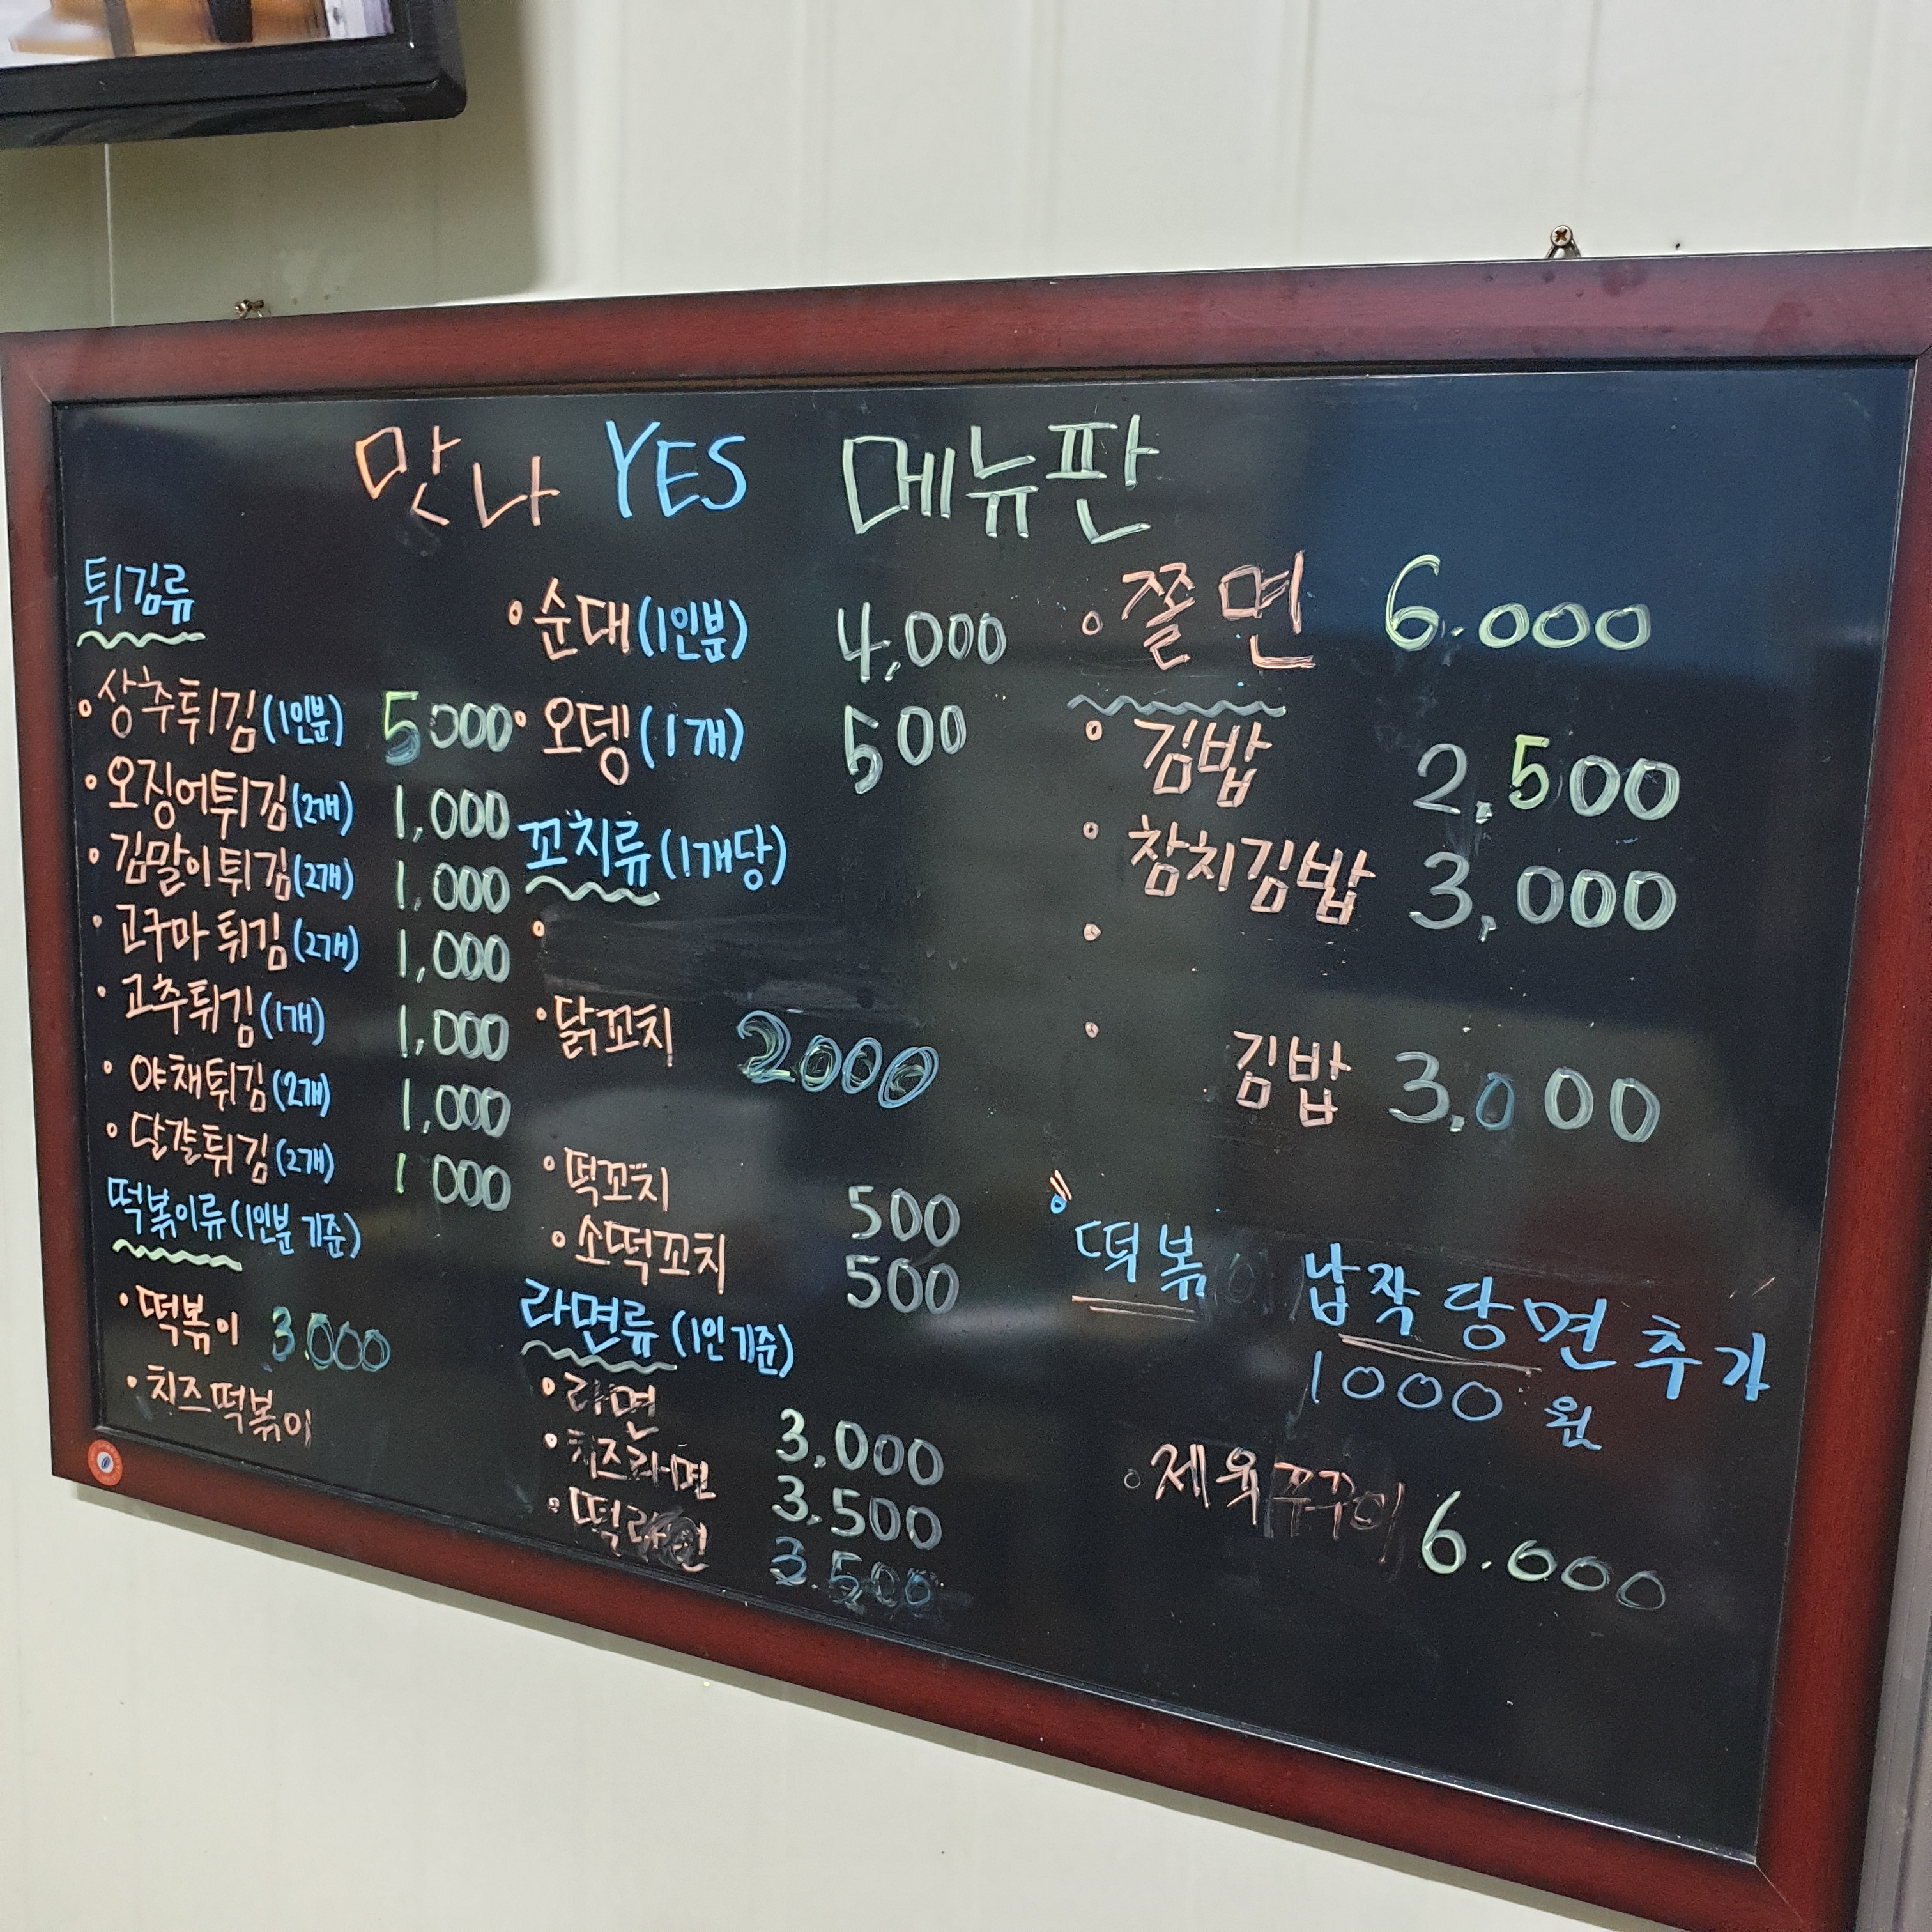 맛나 YES 메뉴판
튀김류
•상추튀김(1인분) 5000
•오징어튀김(2개) 1,000
•김말이튀김(2개) 1,000
•고구마튀김(2개) 1,000
•고추튀김(1개) 1,000
•야채튀김(2개) 1,000
•달걀튀김(2개) 1 000
떡볶이류(1인분 기준)
•떡볶이 3.000
•치즈떡볶이
•순대(1인분) 4,000
•오뎅(1개) 500
꼬치류(1개당)
•닭꼬치 2000
•떡꼬치 500
•소떡꼬치 500
라면류(1인 기준)
•라면 3.000
•치즈라면 3.500
•떡라면 3.500
•쫄면 6.000
•김밥 2,500
•참치김밥 3,000
김밥 3.000
떡볶 납작당면추가
1000원
•제육쭈꾸미 6.000